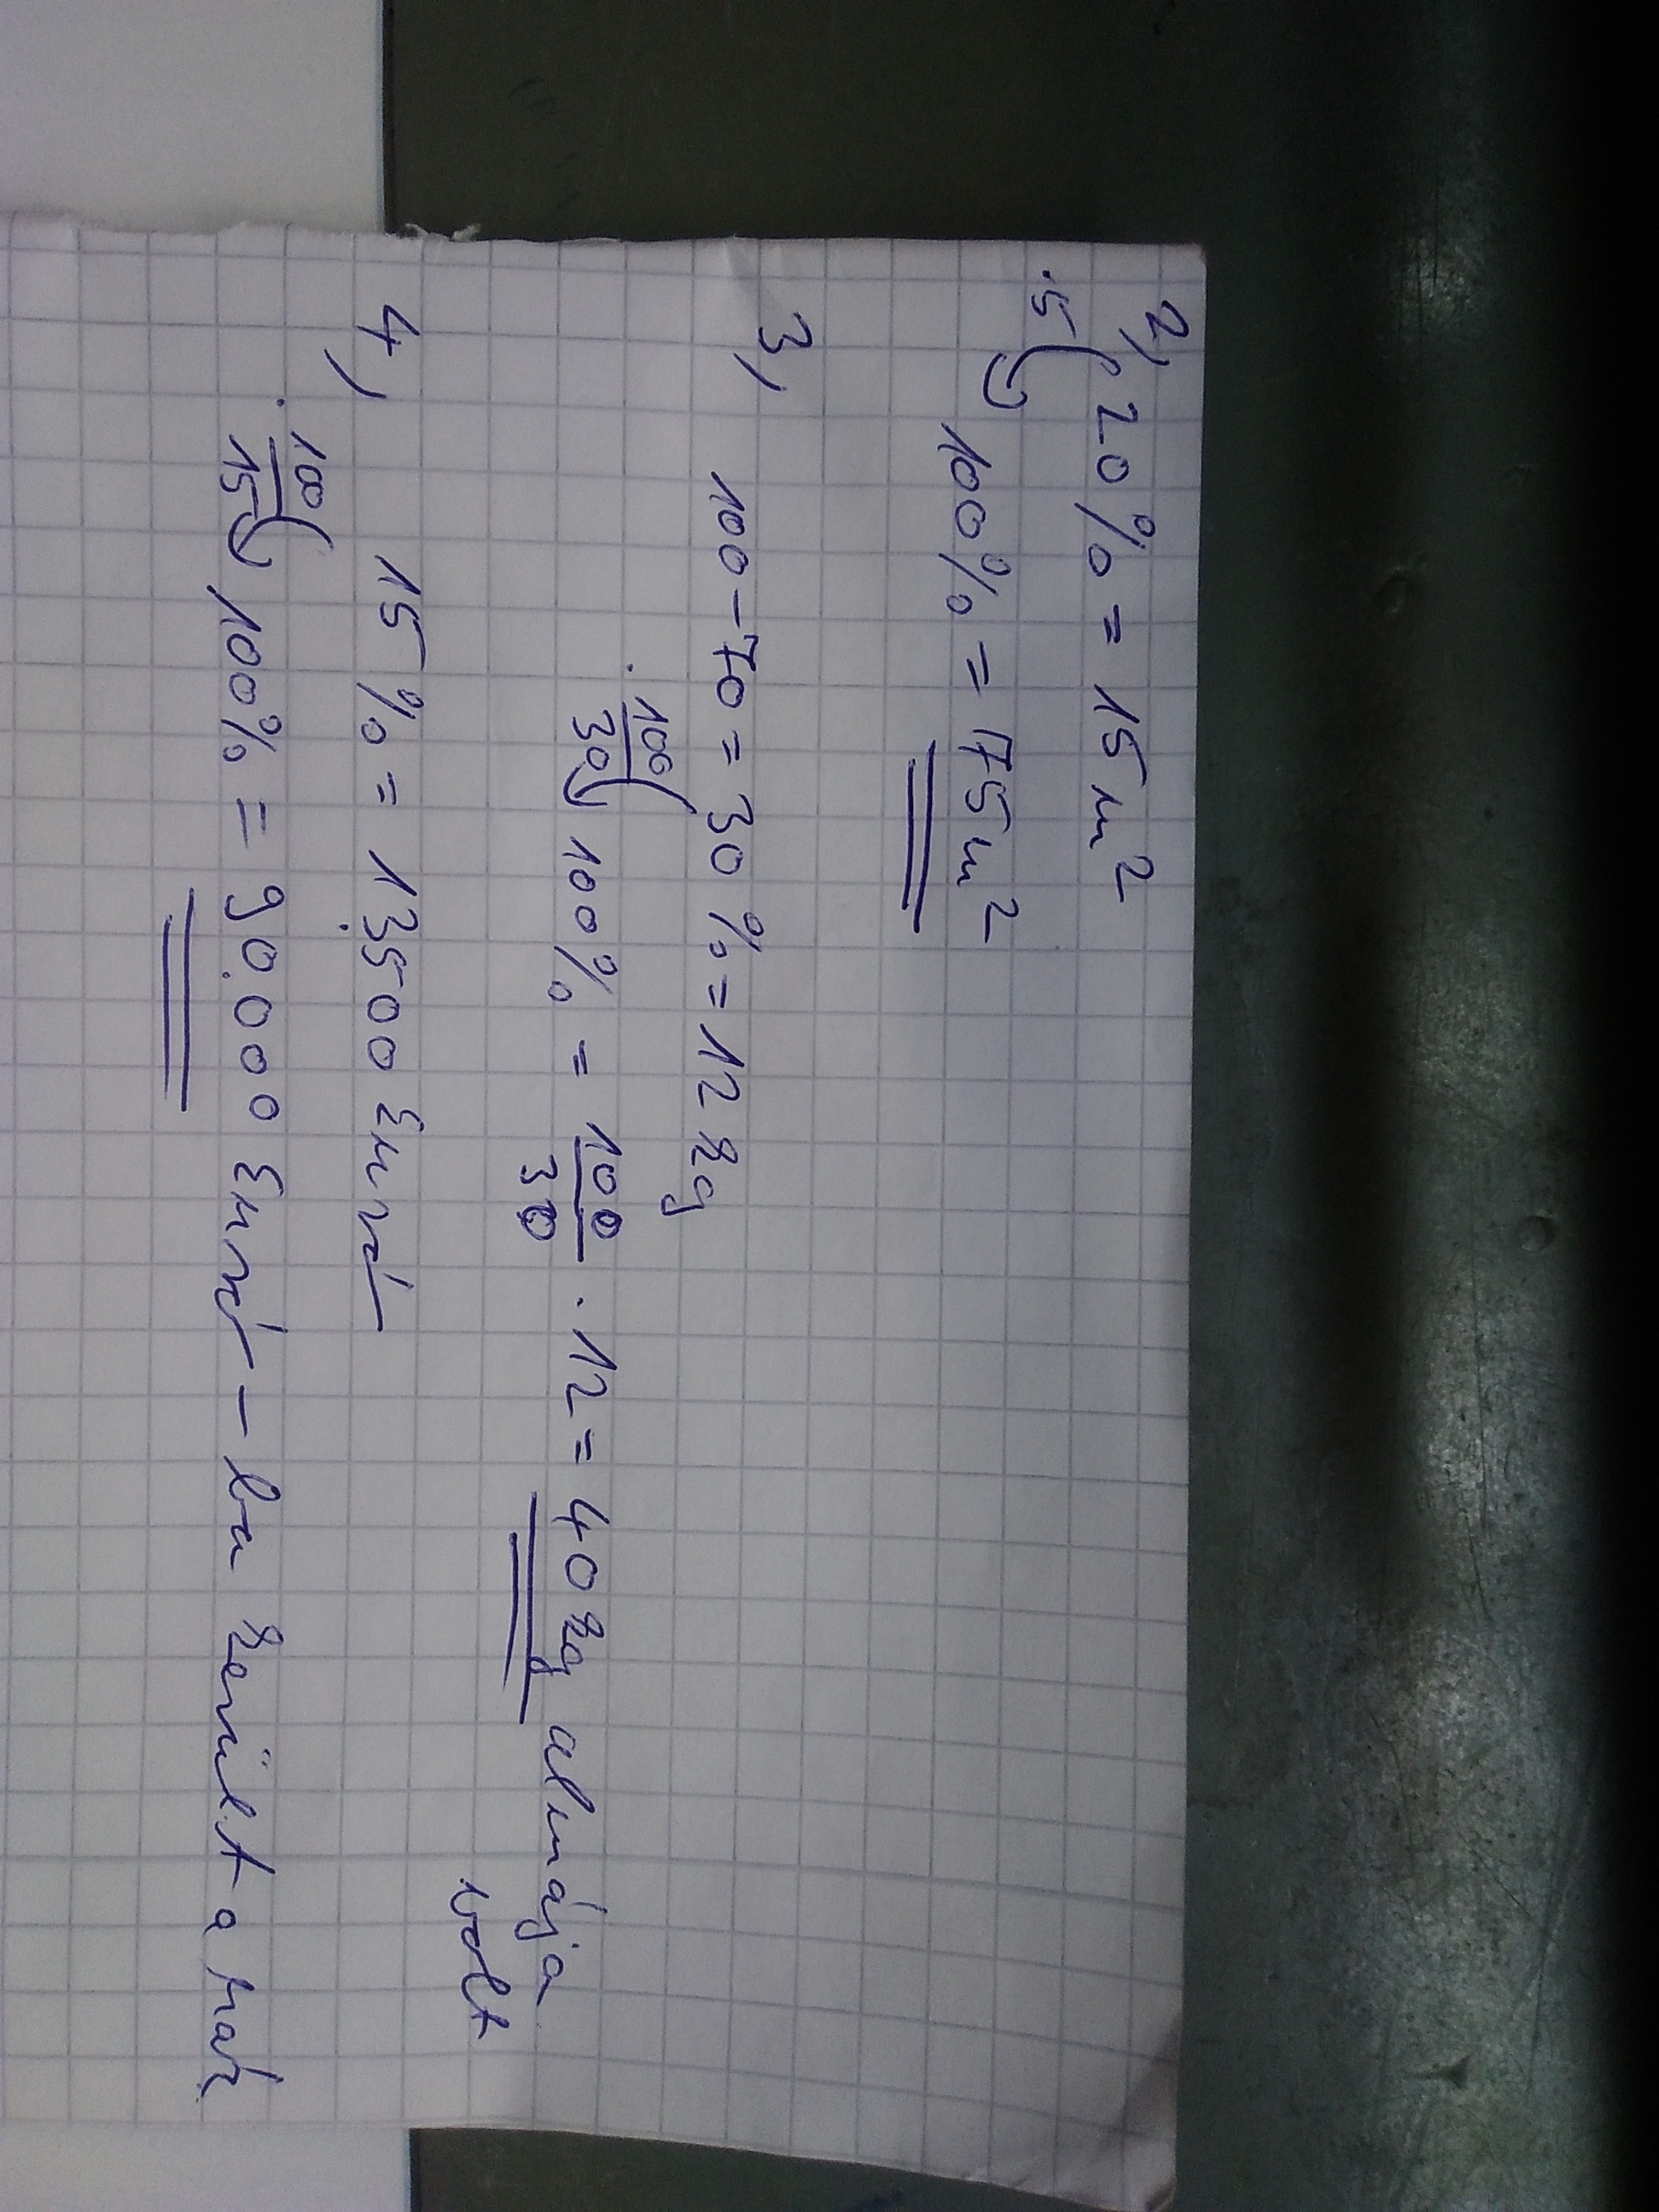 2, 20% = 15 m²
·5
100% = 75 m²
3, 100-70 = 30% = 12 kg
· 100/30 100% = 100/30 · 12 = 40 kg almája
volt
4, 15% = 13.500 Euró
· 100/15 100% = 90.000 Euró-ba került a ház